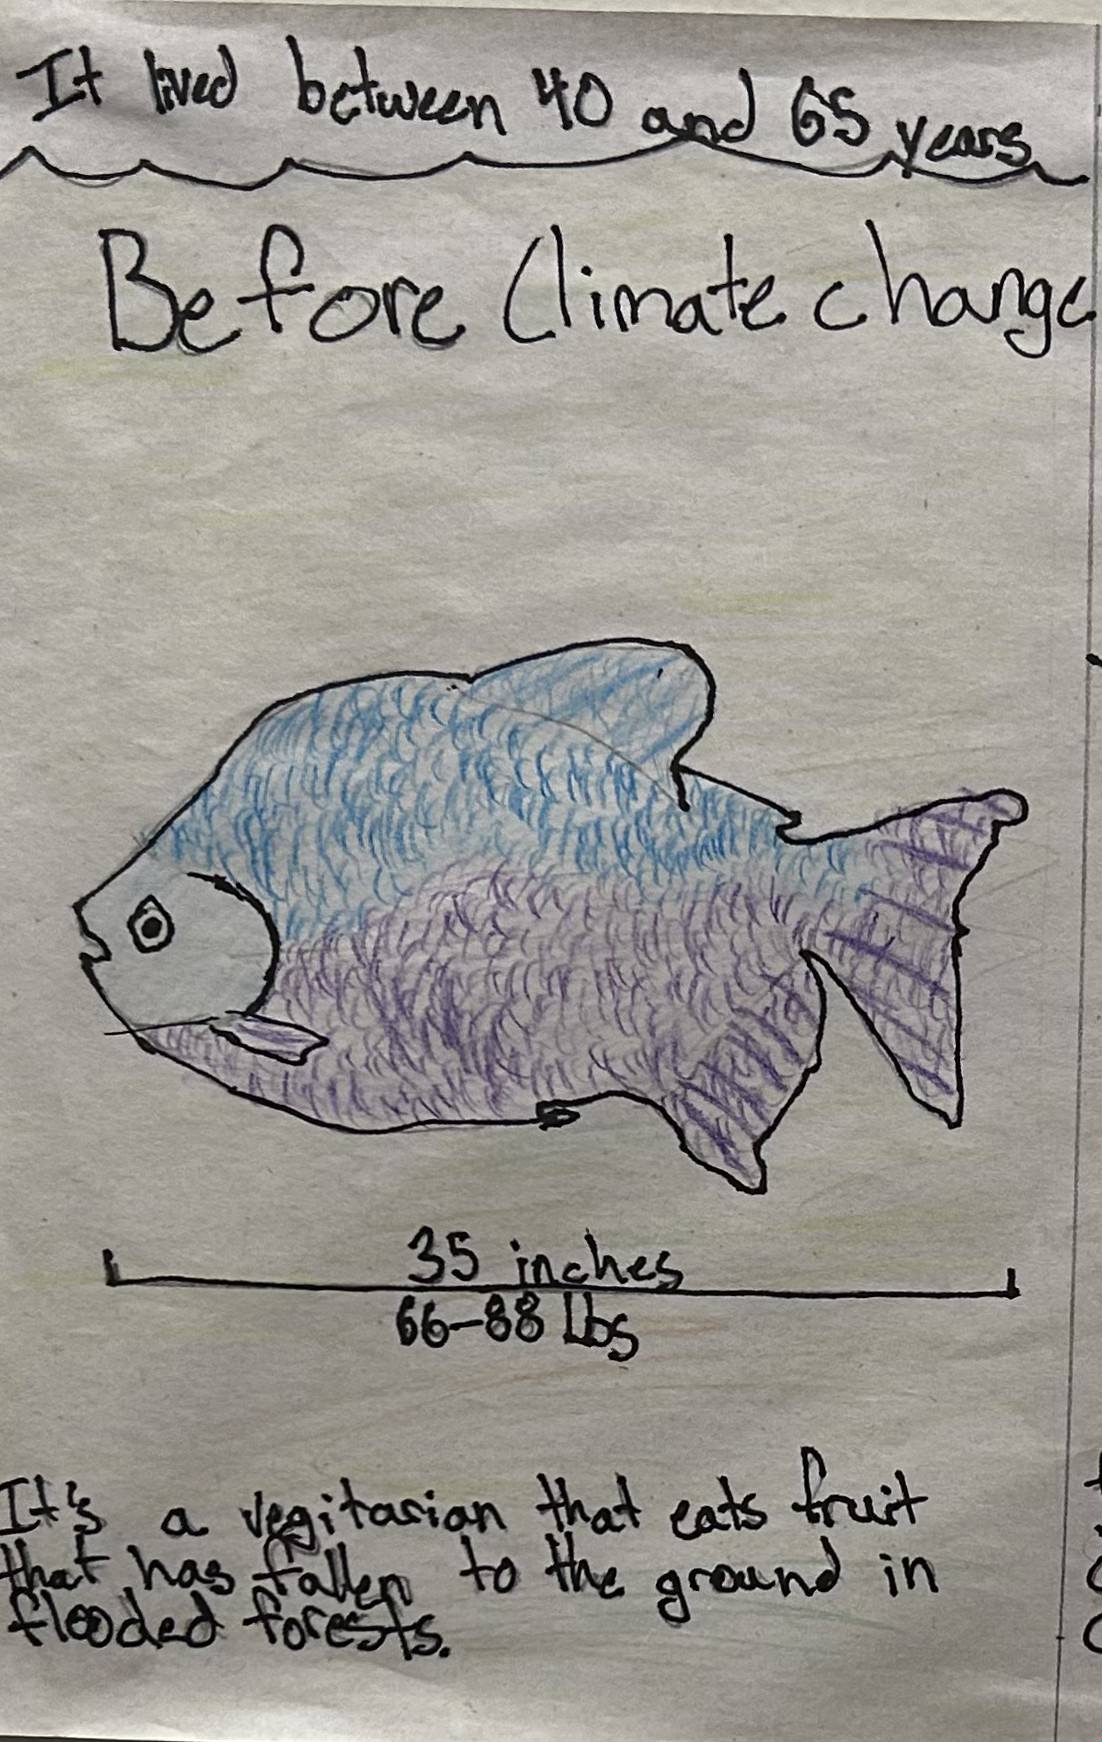 It lived between 40 and 65 years
Before Climate change
35 inches
66-88 Lbs
It's a vegitarian that eats fruit
that has fallen to the ground in
flooded forests.